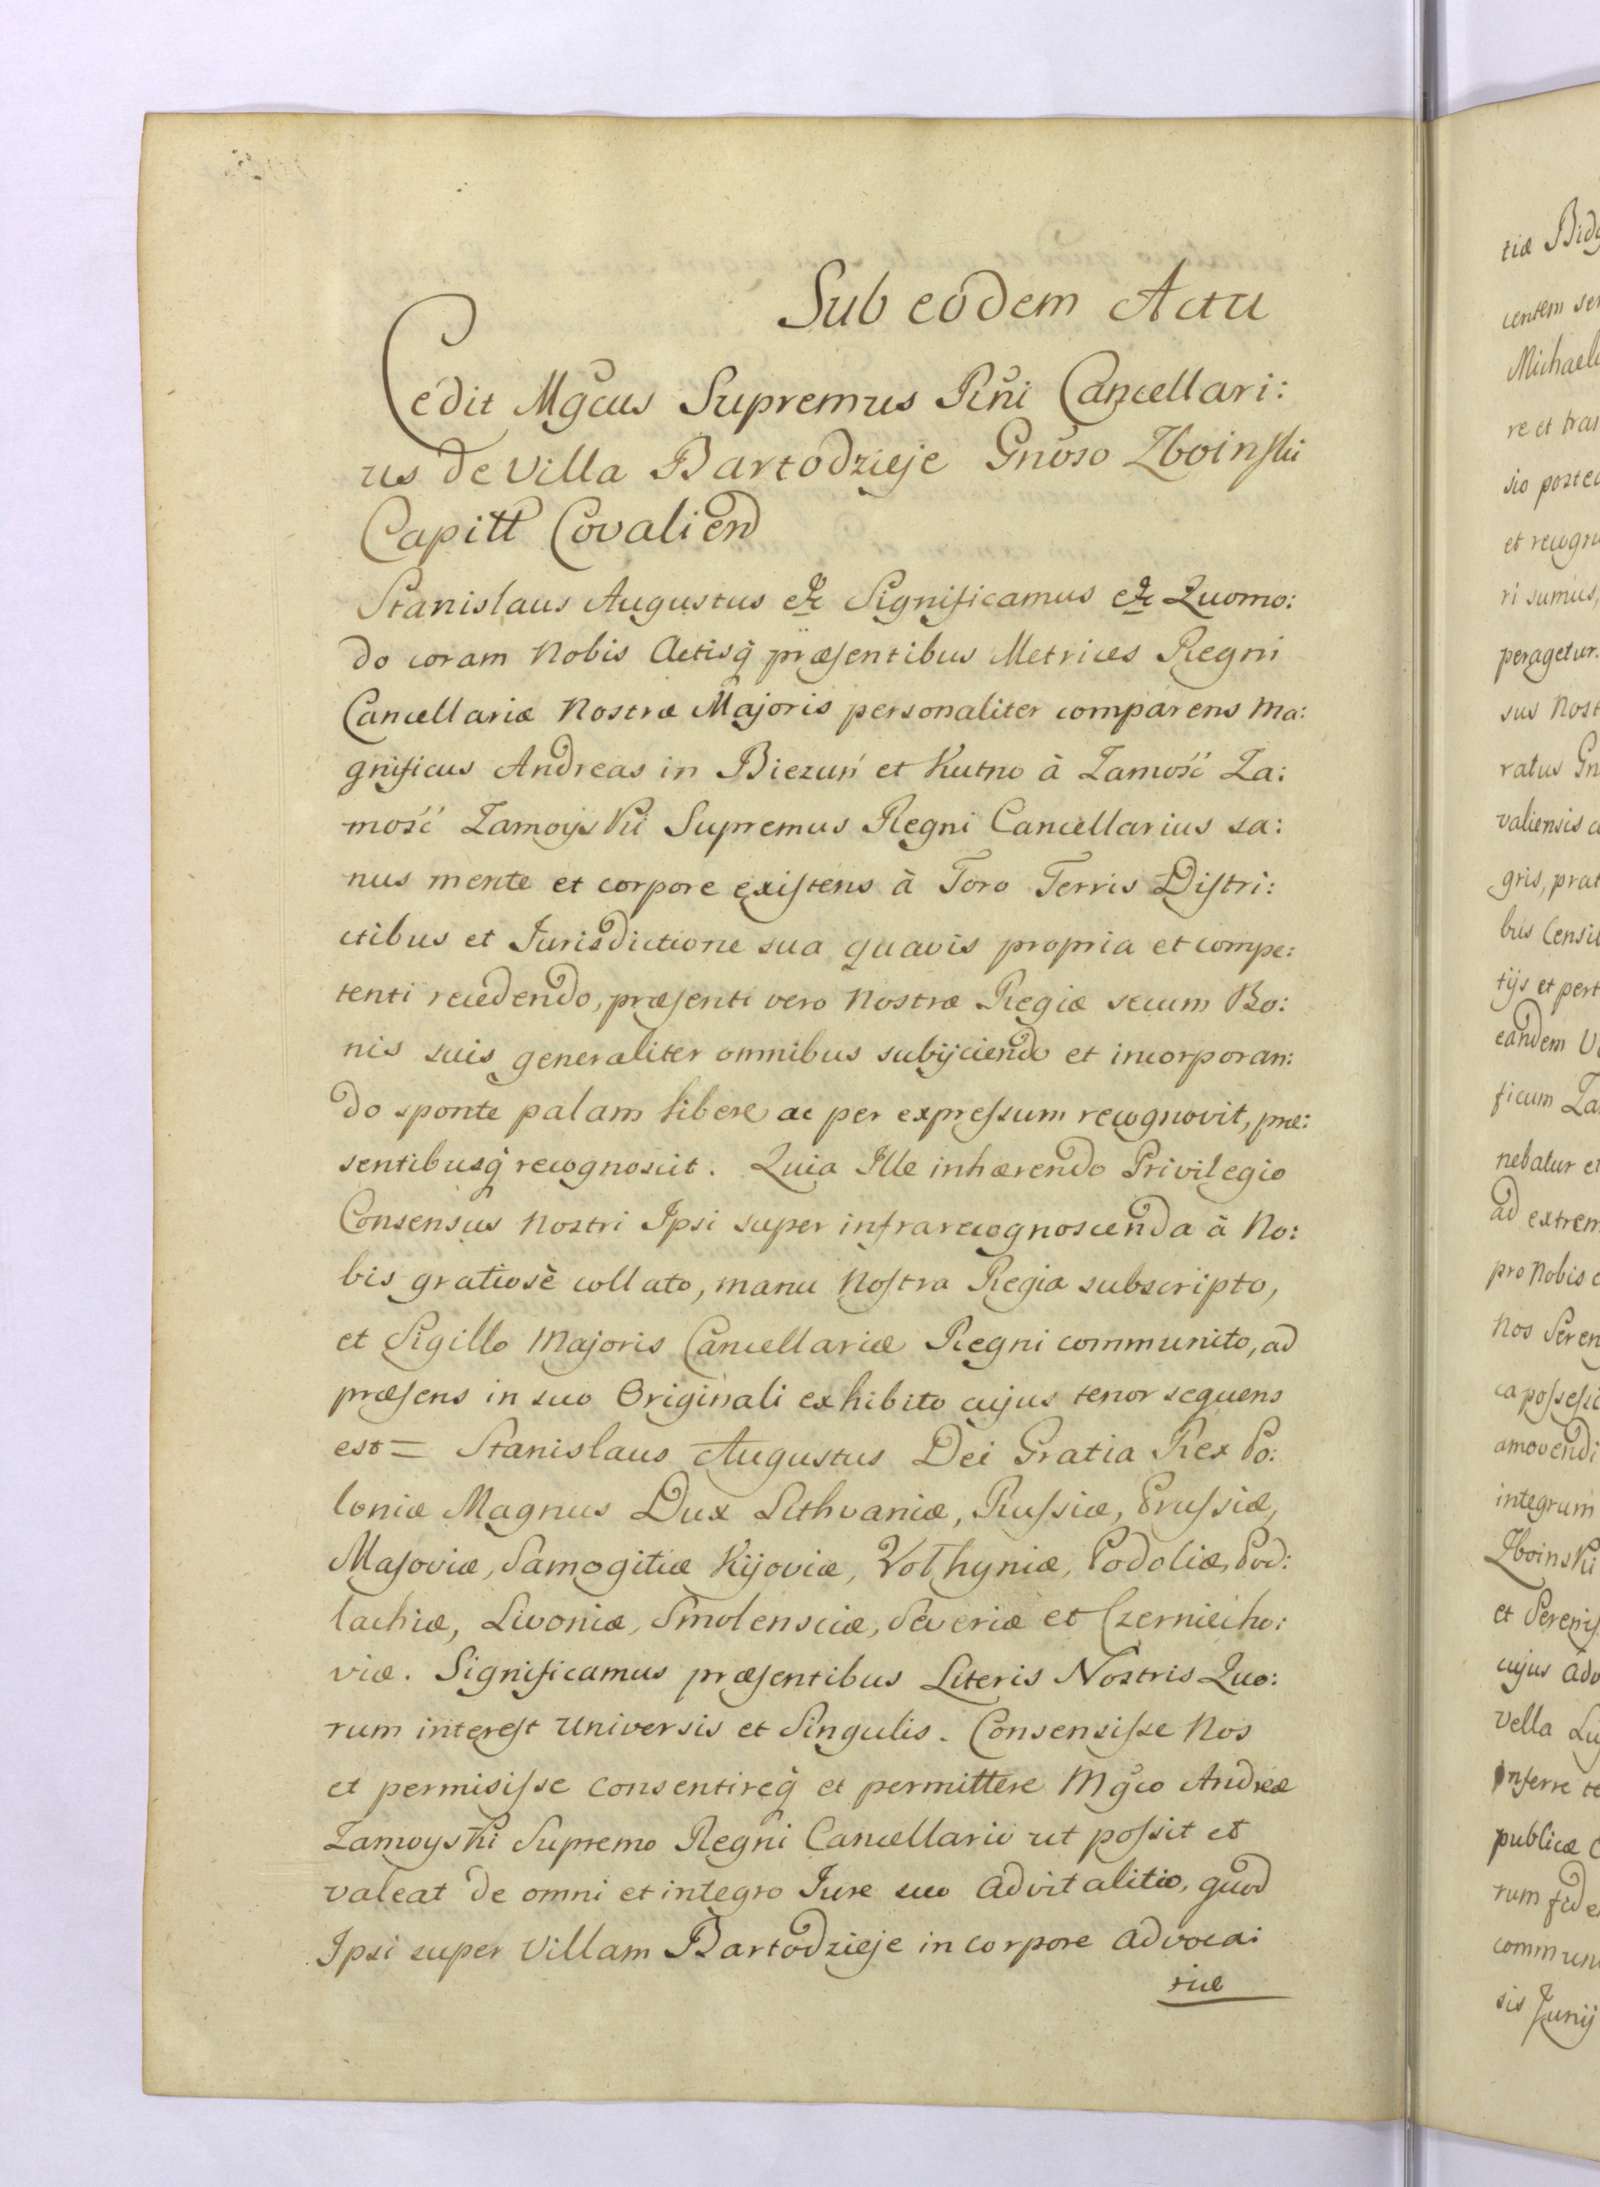 Sub eodem Actu
Cedit Mgcus Supremus Rni Cancellari:
us de Villa Bartodzieje Gnoso Zboinski
Capitt Covalien
Stanislaus Augustus &c Significamus &c Quomo:
do coram Nobis Actisq præsentibus Metrices Regni
Cancellariæ Nostræ Majoris personaliter comparens Ma:
gnificus Andreas in Biezuń et Kutno à Zamość Za:
mość Zamoyski Supremus Regni Cancellarius sa:
nus mente et corpore existens à Foro Terris Distri:
ctibus et Jurisdictione sua quavis propria et compe:
tenti recedendo, præsenti vero Nostræ Regiæ secum Bo:
nis suis generaliter omnibus subijciendo et incorporan:
do sponte palam libere ac per expressum recognovit, præ:
sentibusq recognoscit. Quia Ille inhærendo Privilegio
Consensus Nostri Ipsi super infrarecognoscenda à No:
bis gratiosè collato, manu Nostra Regia subscripto,
et Sigillo Majoris Cancellariæ Regni communito, ad
præsens in suo Originali exhibito cujus tenor sequens
est = Stanislaus Augustus Dei Gratia Rex Po:
loniæ Magnus Dux Lithvaniæ, Russiæ, Prussiæ,
Masoviæ, Samogitiæ Kijoviæ, Volhyniæ, Podoliæ, Pod:
lachiæ, Livoniæ, Smolensciæ, Severiæ et Czerniecho:
viæ. Significamus præsentibus Literis Nostris Quo:
rum interest Universis et Singulis. Consensisse Nos
et permisisse consentireq et permittere Mgco Andreæ
Zamoyski Supremo Regni Cancellario ut possit et
valeat de omni et integro Jure suo Advitalitio, quod
Ipsi super Villam Bartodzieje in corpore Advoca:
tiæ
tiæ
centem
re et
et
ri sumus,
peragetur.
sus
ratus
valiensis
gris,
bus
tijs et
eandem
ficum
nebatur et
ad
pro Nobis
Nos
amovendi
integrum
Zboinski
et
cujus
vella
inferre
publicæ
rum
sis Junij